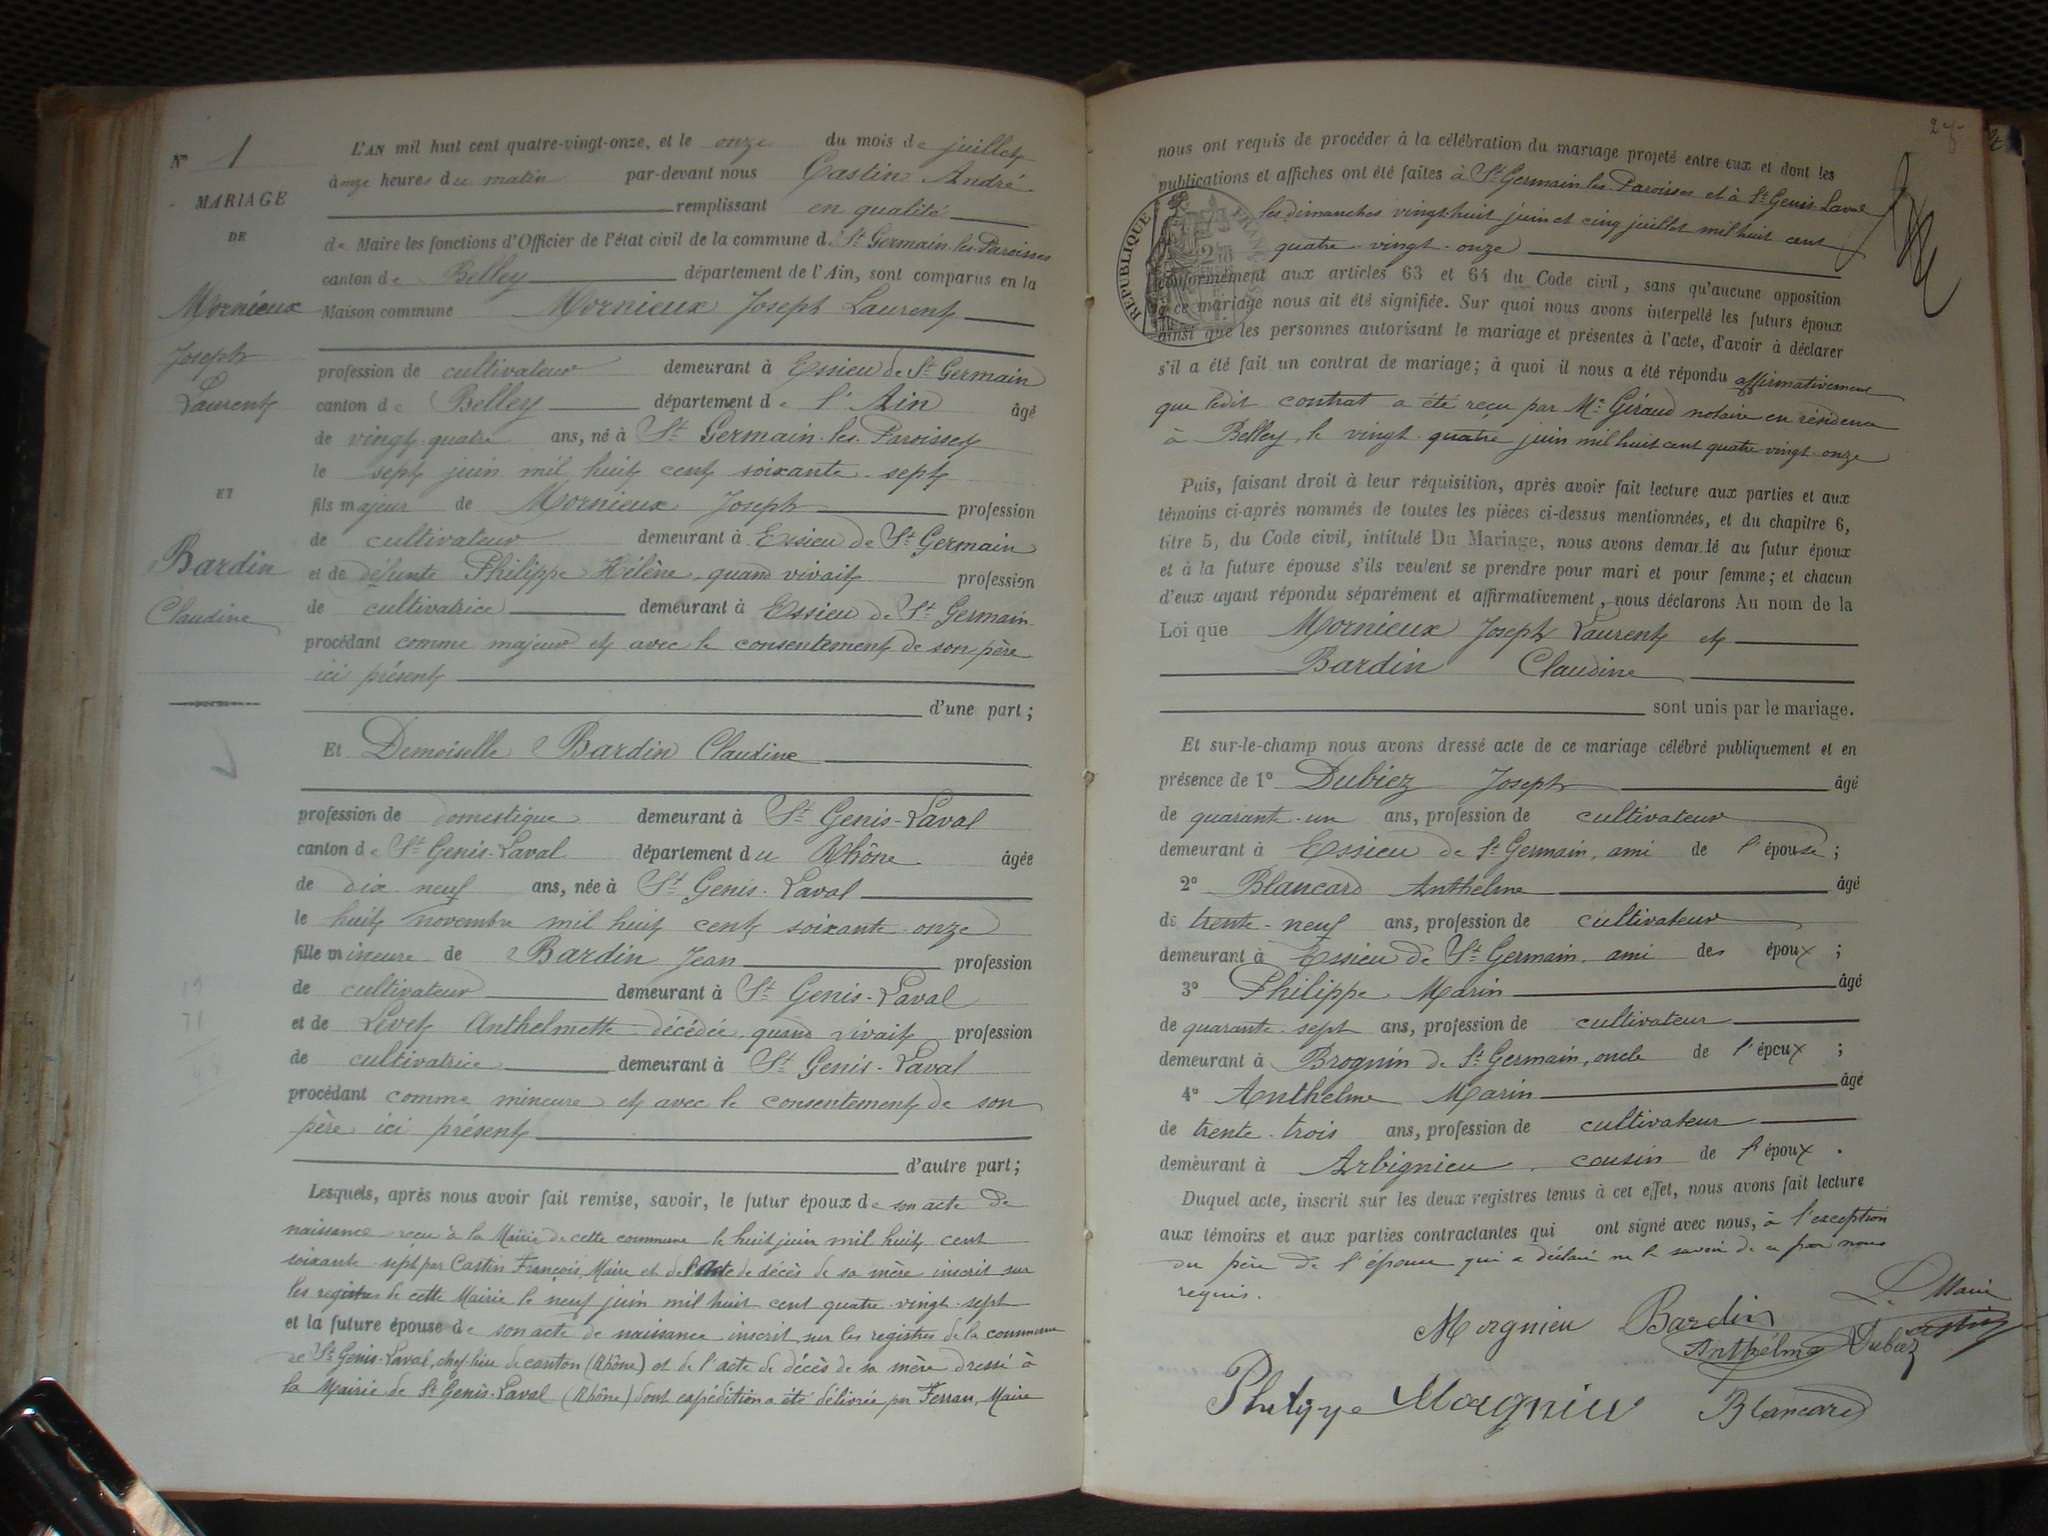 N° 1
MARIAGE
DE
Mornieux
Joseph
Laurent
ET
Bardin
Claudine
L'AN mil huit cent quatre-vingt-onze, et le onze du mois de juillet
à onze heures du matin par-devant nous Castin André
remplissant en qualité
de Maire les fonctions d'Officier de l'état civil de la commune d. St Germain-les-Paroisses
canton de Belley département de l'Ain, sont comparus en la
Maison commune Mornieux Joseph Laurent
profession de cultivateur demeurant à Essieu de St Germain
canton de Belley département de l'Ain âgé
de vingt-quatre ans, né à St Germain-les-Paroisses
le sept juin mil huit cent soixante-sept
fils majeur de Mornieux Joseph profession
de cultivateur demeurant à Essieu de St Germain
et de défunte Philippe Hélène, quand vivait profession
de cultivatrice demeurant à Essieu de St Germain
procédant comme majeur et avec le consentement de son père
ici présent
d'une part;
Et Demoiselle Bardin Claudine
profession de domestique demeurant à St Genis-Laval
canton de St Genis-Laval département du Rhône âgée
de dix neuf ans, née à St Genis-Laval
le huit novembre mil huit cent soixante-onze
fille mineure de Bardin Jean profession
de cultivateur demeurant à St Genis-Laval
et de Levet Anthelmette décédée quand vivait profession
de cultivatrice demeurant à St Genis-Laval
procédant comme mineure et avec le consentement de son
père ici présent
d'autre part;
Lesquels, après nous avoir fait remise, savoir, le futur époux de son acte de
naissance reçu à la Mairie de cette commune le huit juin mil huit cent
soixante-sept par Castin François, Maire et de l'acte de décès de sa mère inscrit sur
les registres de cette Mairie le neuf juin mil huit cent quatre-vingt-sept
et la future épouse de son acte de naissance inscrit sur les registres de la commune
de St Genis-Laval, chef lieu de canton (Rhône) et de l'acte de décès de sa mère dressé à
la Mairie de St Genis-Laval (Rhône) dont expédition a été délivrée par Ferran, Maire
nous ont requis de procéder à la célébration du mariage projeté entre eux et dont les
publications et affiches ont été faites à St Germain-les-Paroisses et à St Genis-Laval
les dimanches vingt-huit juin et cinq juillet mil huit cent
quatre-vingt-onze
conformément aux articles 63 et 64 du Code civil, sans qu'aucune opposition
à ce mariage nous ait été signifiée. Sur quoi nous avons interpellé les futurs époux
ainsi que les personnes autorisant le mariage et présentes à l'acte, d'avoir à déclarer
s'il a été fait un contrat de mariage; à quoi il nous a été répondu affirmativement
que ledit contrat a été reçu par Me Giraud notaire en résidence
à Belley, le vingt-quatre juin mil huit cent quatre vingt-onze
Puis, faisant droit à leur réquisition, après avoir fait lecture aux parties et aux
témoins ci-après nommés de toutes les pièces ci-dessus mentionnées, et du chapitre 6,
titre 5, du Code civil, intitulé Du Mariage, nous avons demandé au futur époux
et à la future épouse s'ils veulent se prendre pour mari et pour femme; et chacun
d'eux ayant répondu séparément et affirmativement, nous déclarons Au nom de la
Loi que Mornieux Joseph Laurent et
Bardin Claudine
sont unis par le mariage.
Et sur-le-champ nous avons dressé acte de ce mariage célébré publiquement et en
présence de 1° Dubiez Joseph âgé
de quarante-un ans, profession de cultivateur
demeurant à Essieu de St Germain, ami de l'épouse;
2° Blancard Anthelme âgé
de trente-neuf ans, profession de cultivateur
demeurant à Essieu de St Germain ami des époux;
3° Philippe Marin âgé
de quarante-sept ans, profession de cultivateur
demeurant à Brognin de St Germain, oncle de l'époux;
4° Anthelme Marin âgé
de trente-trois ans, profession de cultivateur
demeurant à Arbignieu, cousin de l'époux.
Duquel acte, inscrit sur les deux registres tenus à cet effet, nous avons fait lecture
aux témoins et aux parties contractantes qui ont signé avec nous, à l'exception
du père de l'épouse qui a déclaré ne le savoir de ce par nous
requis.
Le Maire
Morgnieu Bardin Castin
Anthelme Dubiez
Philippe Morgnieu Blancard
RÉPUBLIQUE